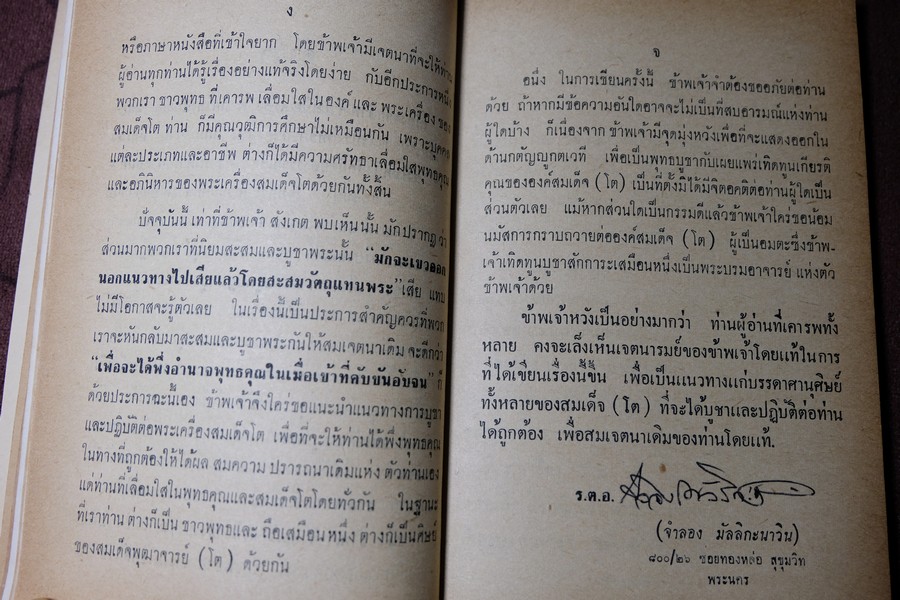 ง
หรือภาษาหนังสือที่เข้าใจยาก โดยข้าพเจ้ามีเจตนาที่จะให้ท่าน
ผู้อ่านทุกท่านได้รู้เรื่องอย่างแท้จริงโดยง่าย กับอีกประการหนึ่ง
พวกเรา ชาวพุทธ ที่เคารพ เลื่อมใสในองค์ และ พระเครื่อง ของ
สมเด็จโต ท่าน ก็มีคุณวุฒิการศึกษาไม่เหมือนกัน เพราะบุคคล
แต่ละประเภทและอาชีพ ต่างก็ได้มีความศรัทธาเลื่อมใสพุทธคุณ
และอภินิหารของพระเครื่องสมเด็จโตด้วยกันทั้งสิ้น
ปัจจุบันนี้ เท่าที่ข้าพเจ้า สังเกต พบเห็นนั้น มักปรากฏ ว่า
ส่วนมากพวกเราที่นิยมสะสมและบูชาพระนั้น "มักจะเขวออก
นอกแนวทางไปเสียแล้วโดยสะสมวัตถุแทนพระ" เสีย แทบ
ไม่มีโอกาสจะรู้ตัวเลย ในเรื่องนี้เป็นประการสำคัญควรที่พวก
เราจะหันกลับมาสะสมและบูชาพระกันให้สมเจตนาเดิม จะดีกว่า
"เพื่อจะได้พึ่งอำนาจพุทธคุณในเมื่อเข้าที่คับขันอับจน" ก็
ด้วยประการฉะนี้เอง ข้าพเจ้าจึงใคร่ขอแนะนำแนวทางการบูชา
และปฏิบัติต่อพระเครื่องสมเด็จโต เพื่อที่จะให้ท่านได้พึ่งพุทธคุณ
ในทางที่ถูกต้องให้ได้ผล สมความ ปรารถนาเดิมแห่ง ตัวท่านเอง
แต่ท่านที่เลื่อมใสในพุทธคุณและสมเด็จโตโดยทั่วกัน ในฐานะ
ที่เราท่าน ต่างก็เป็น ชาวพุทธและ ถือเสมือน หนึ่ง ต่างก็เป็นศิษย์
ของสมเด็จพุฒาจารย์ (โต) ด้วยกัน
จ
อนึ่ง ในการเขียนครั้งนี้ ข้าพเจ้าจำต้องขออภัยต่อท่าน
ด้วย ถ้าหากมีข้อความอันใดอาจจะไม่เป็นที่สบอารมณ์แห่งท่าน
ผู้ใดบ้าง ก็เนื่องจาก ข้าพเจ้ามีจุดมุ่งหวังเพื่อที่จะแสดงออกใน
ด้านกตัญญูกตเวที เพื่อเป็นพุทธบูชากับเผยแพร่เทิดทูนเกียรติ
คุณขององค์สมเด็จ (โต) เป็นที่ตั้งมิได้มีจิตอคติต่อท่านผู้ใดเป็น
ส่วนตัวเลย แม้หากส่วนใดเป็นกรรมดีแล้วข้าพเจ้าใคร่ขอน้อม
นมัสการกราบถวายต่อองค์สมเด็จ (โต) ผู้เป็นอมตะซึ่งข้าพ-
เจ้าเทิดทูนบูชาสักการะเสมือนหนึ่งเป็นพระบรมอาจารย์ แห่งตัว
ข้าพเจ้าด้วย
ข้าพเจ้าหวังเป็นอย่างมากว่า ท่านผู้อ่านที่เคารพทั้ง
หลาย คงจะเล็งเห็นเจตนารมย์ของข้าพเจ้าโดยแท้ในการ
ที่ได้เขียนเรื่องนี้ขึ้น เพื่อเป็นแนวทางแก่บรรดาศานศิษย์
ทั้งหลายของสมเด็จ (โต) ที่จะได้บูชาและปฏิบัติต่อท่าน
ได้ถูกต้อง เพื่อสมเจตนาเดิมของท่านโดยแท้.
ร.ต.อ.
(จำลอง มัลลิกะนาวิน)
๘๐๐/๒๖ ซอยทองหล่อ สุขุมวิท
พระนคร